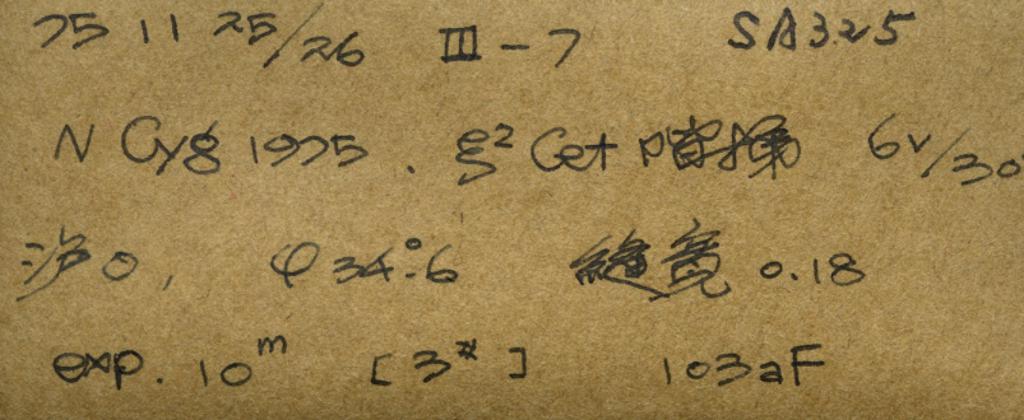 75 11 25/26 III-7 SA325
N Cyg 1975 . ξ² Cet 6v/30
0, φ 34°.6 縫寛 0.18
exp. 10ᵐ [3#] 103aF